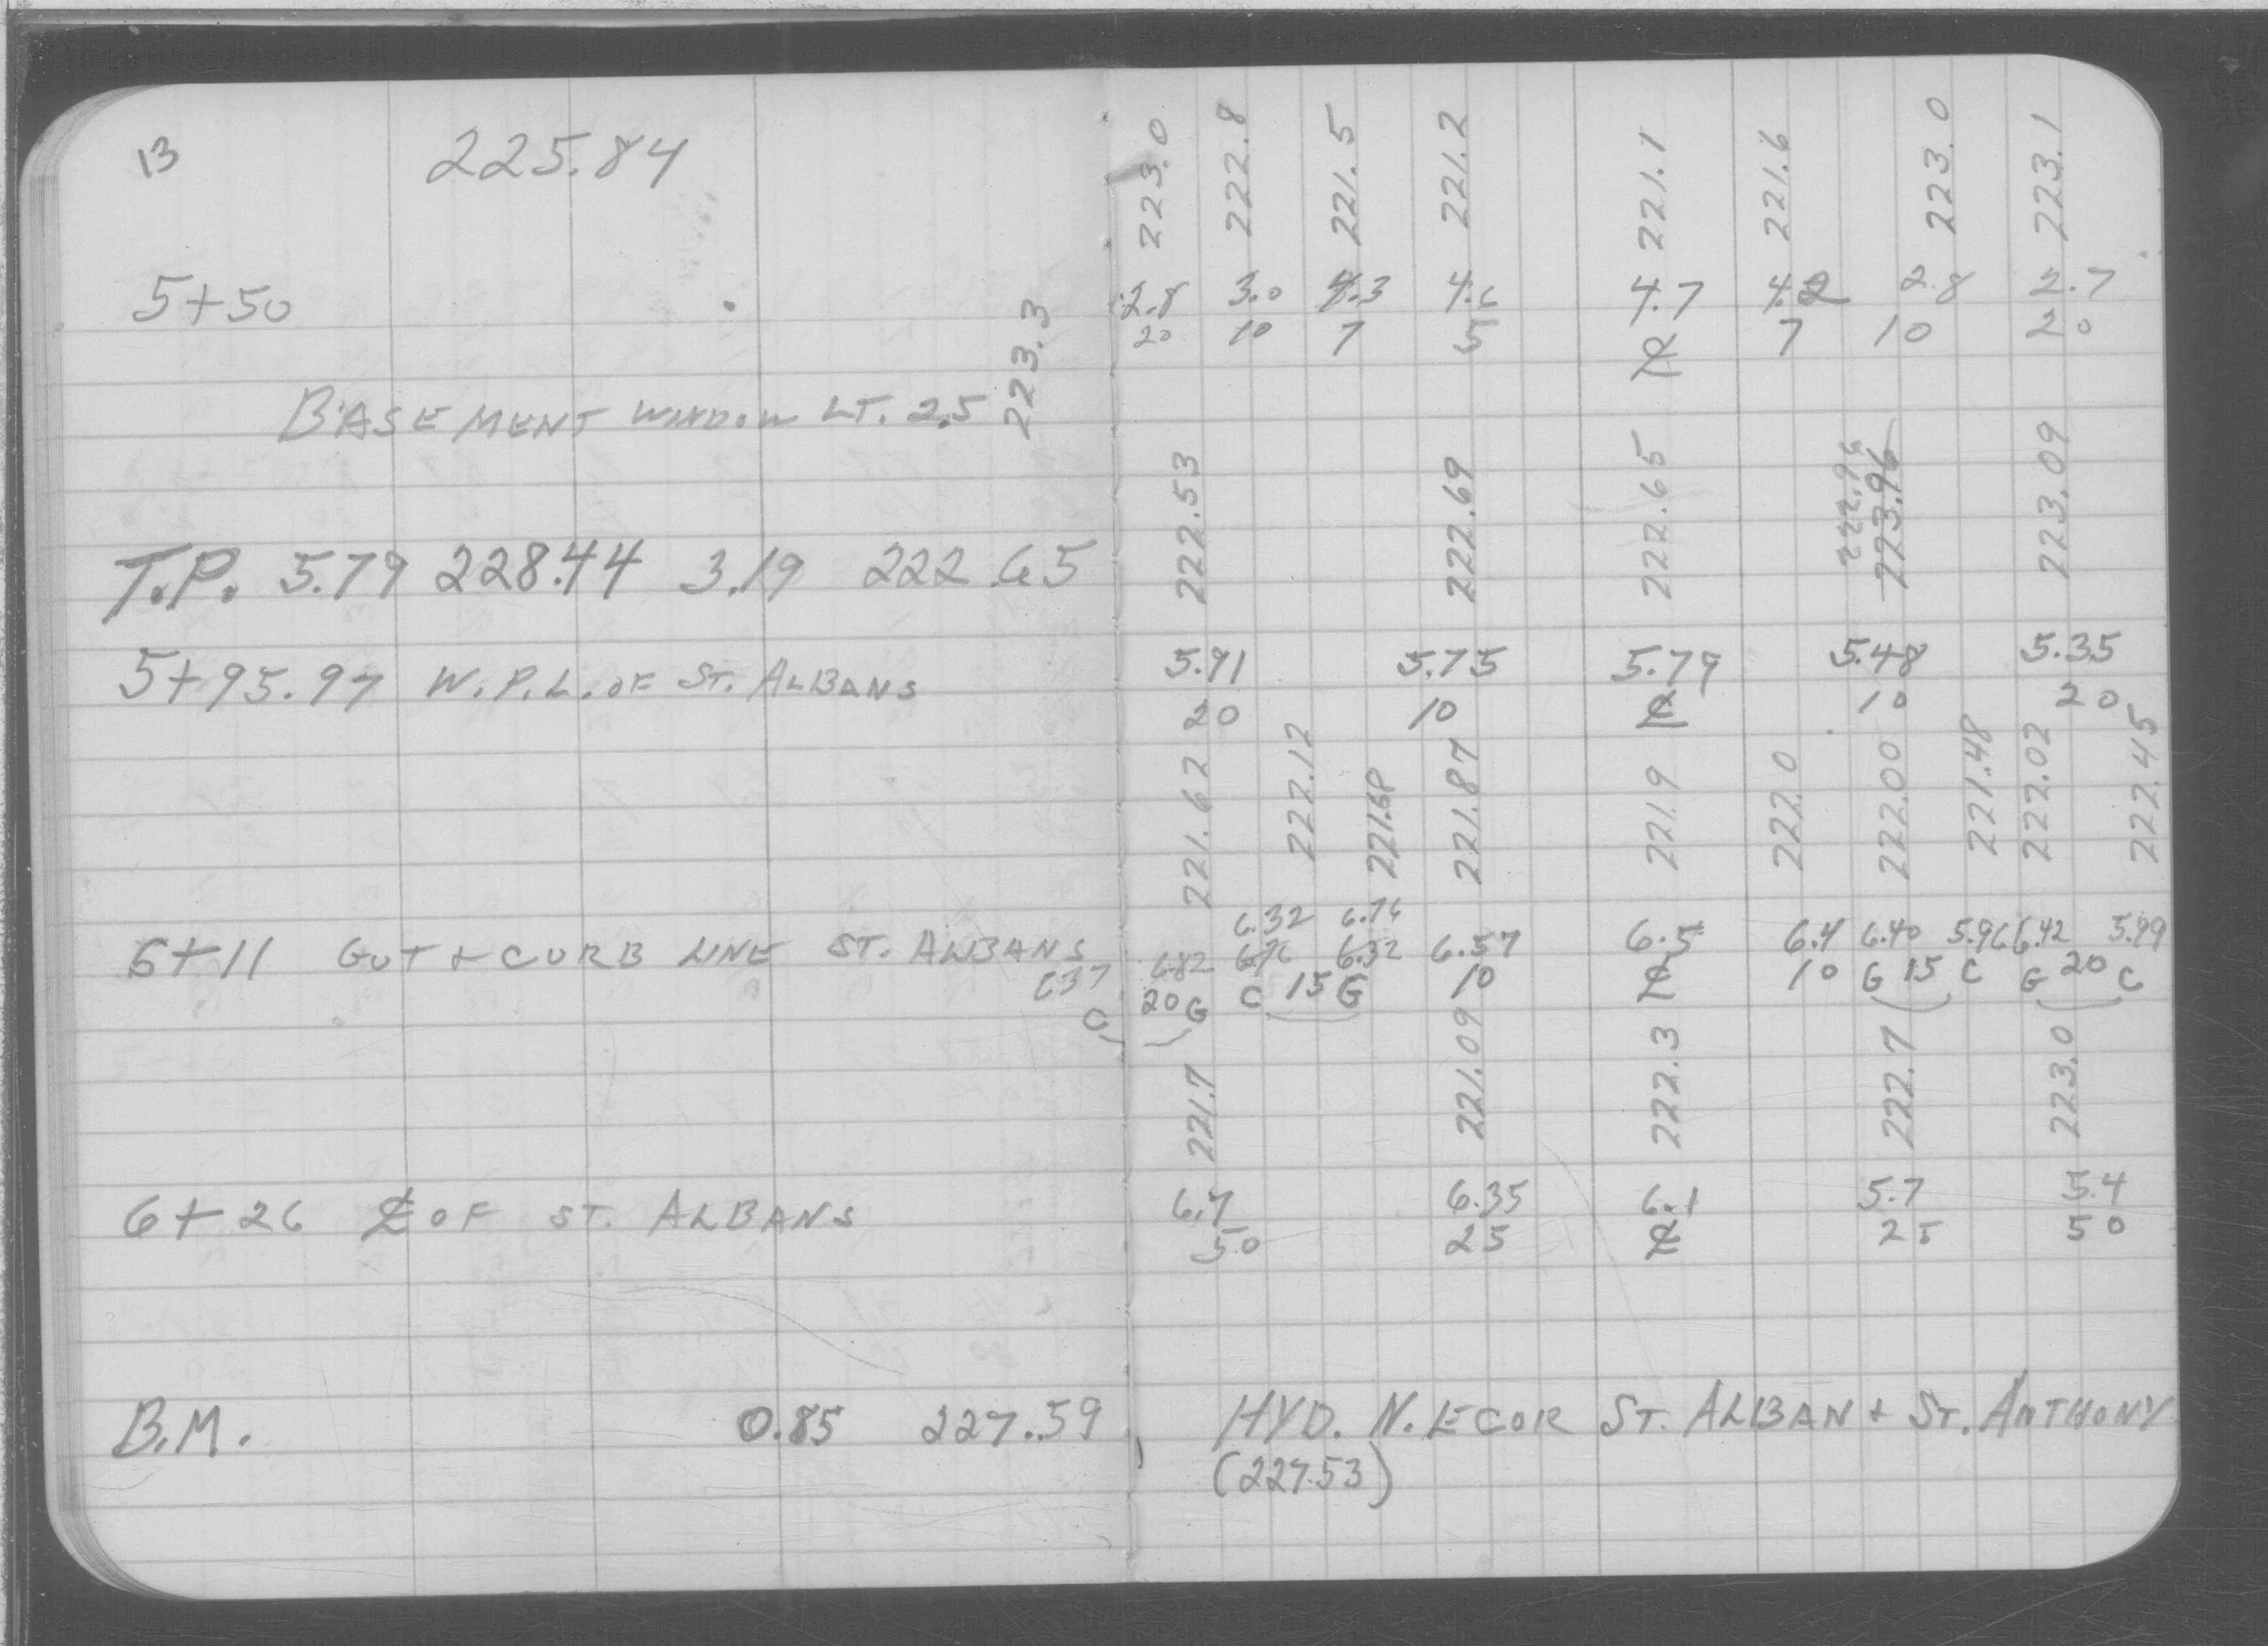 13 225.84 223.0 222.8 221.5 221.2 221.1 221.6 223.0 223.1
5+50 2.8 3.0 4.3 4.6 4.7 4.2 2.8 2.7
20 10 7 5 ℄ 7 10 20
BASEMENT WINDOW LT. 2.5 223.3
222.53 222.69 222.65 222.96 223.96 223.09
T.P. 5.79 228.44 3.19 222.65
5+95.97 W.P.L. OF ST. ALBANS 5.91 5.75 5.79 5.48 5.35
20 10 ℄ 10 20
221.62 222.12 221.68 221.87 221.9 222.0 222.00 221.48 222.02 222.45
6.32 6.76
6+11 GUT + CURB LINE ST. ALBANS 6.82 6.76 6.32 6.57 6.5 6.4 6.40 5.96 6.42 5.99
637 C 20 G C 15 G 10 ℄ 10 G 15 C G 20 C
221.7 221.09 222.3 222.7 223.0
6+26 ℄ OF ST. ALBANS 6.7 6.35 6.1 5.7 5.4
50 25 ℄ 25 50
B.M. 0.85 227.59 HYD. N.E COR ST. ALBAN + ST. ANTHONY
(227.53)